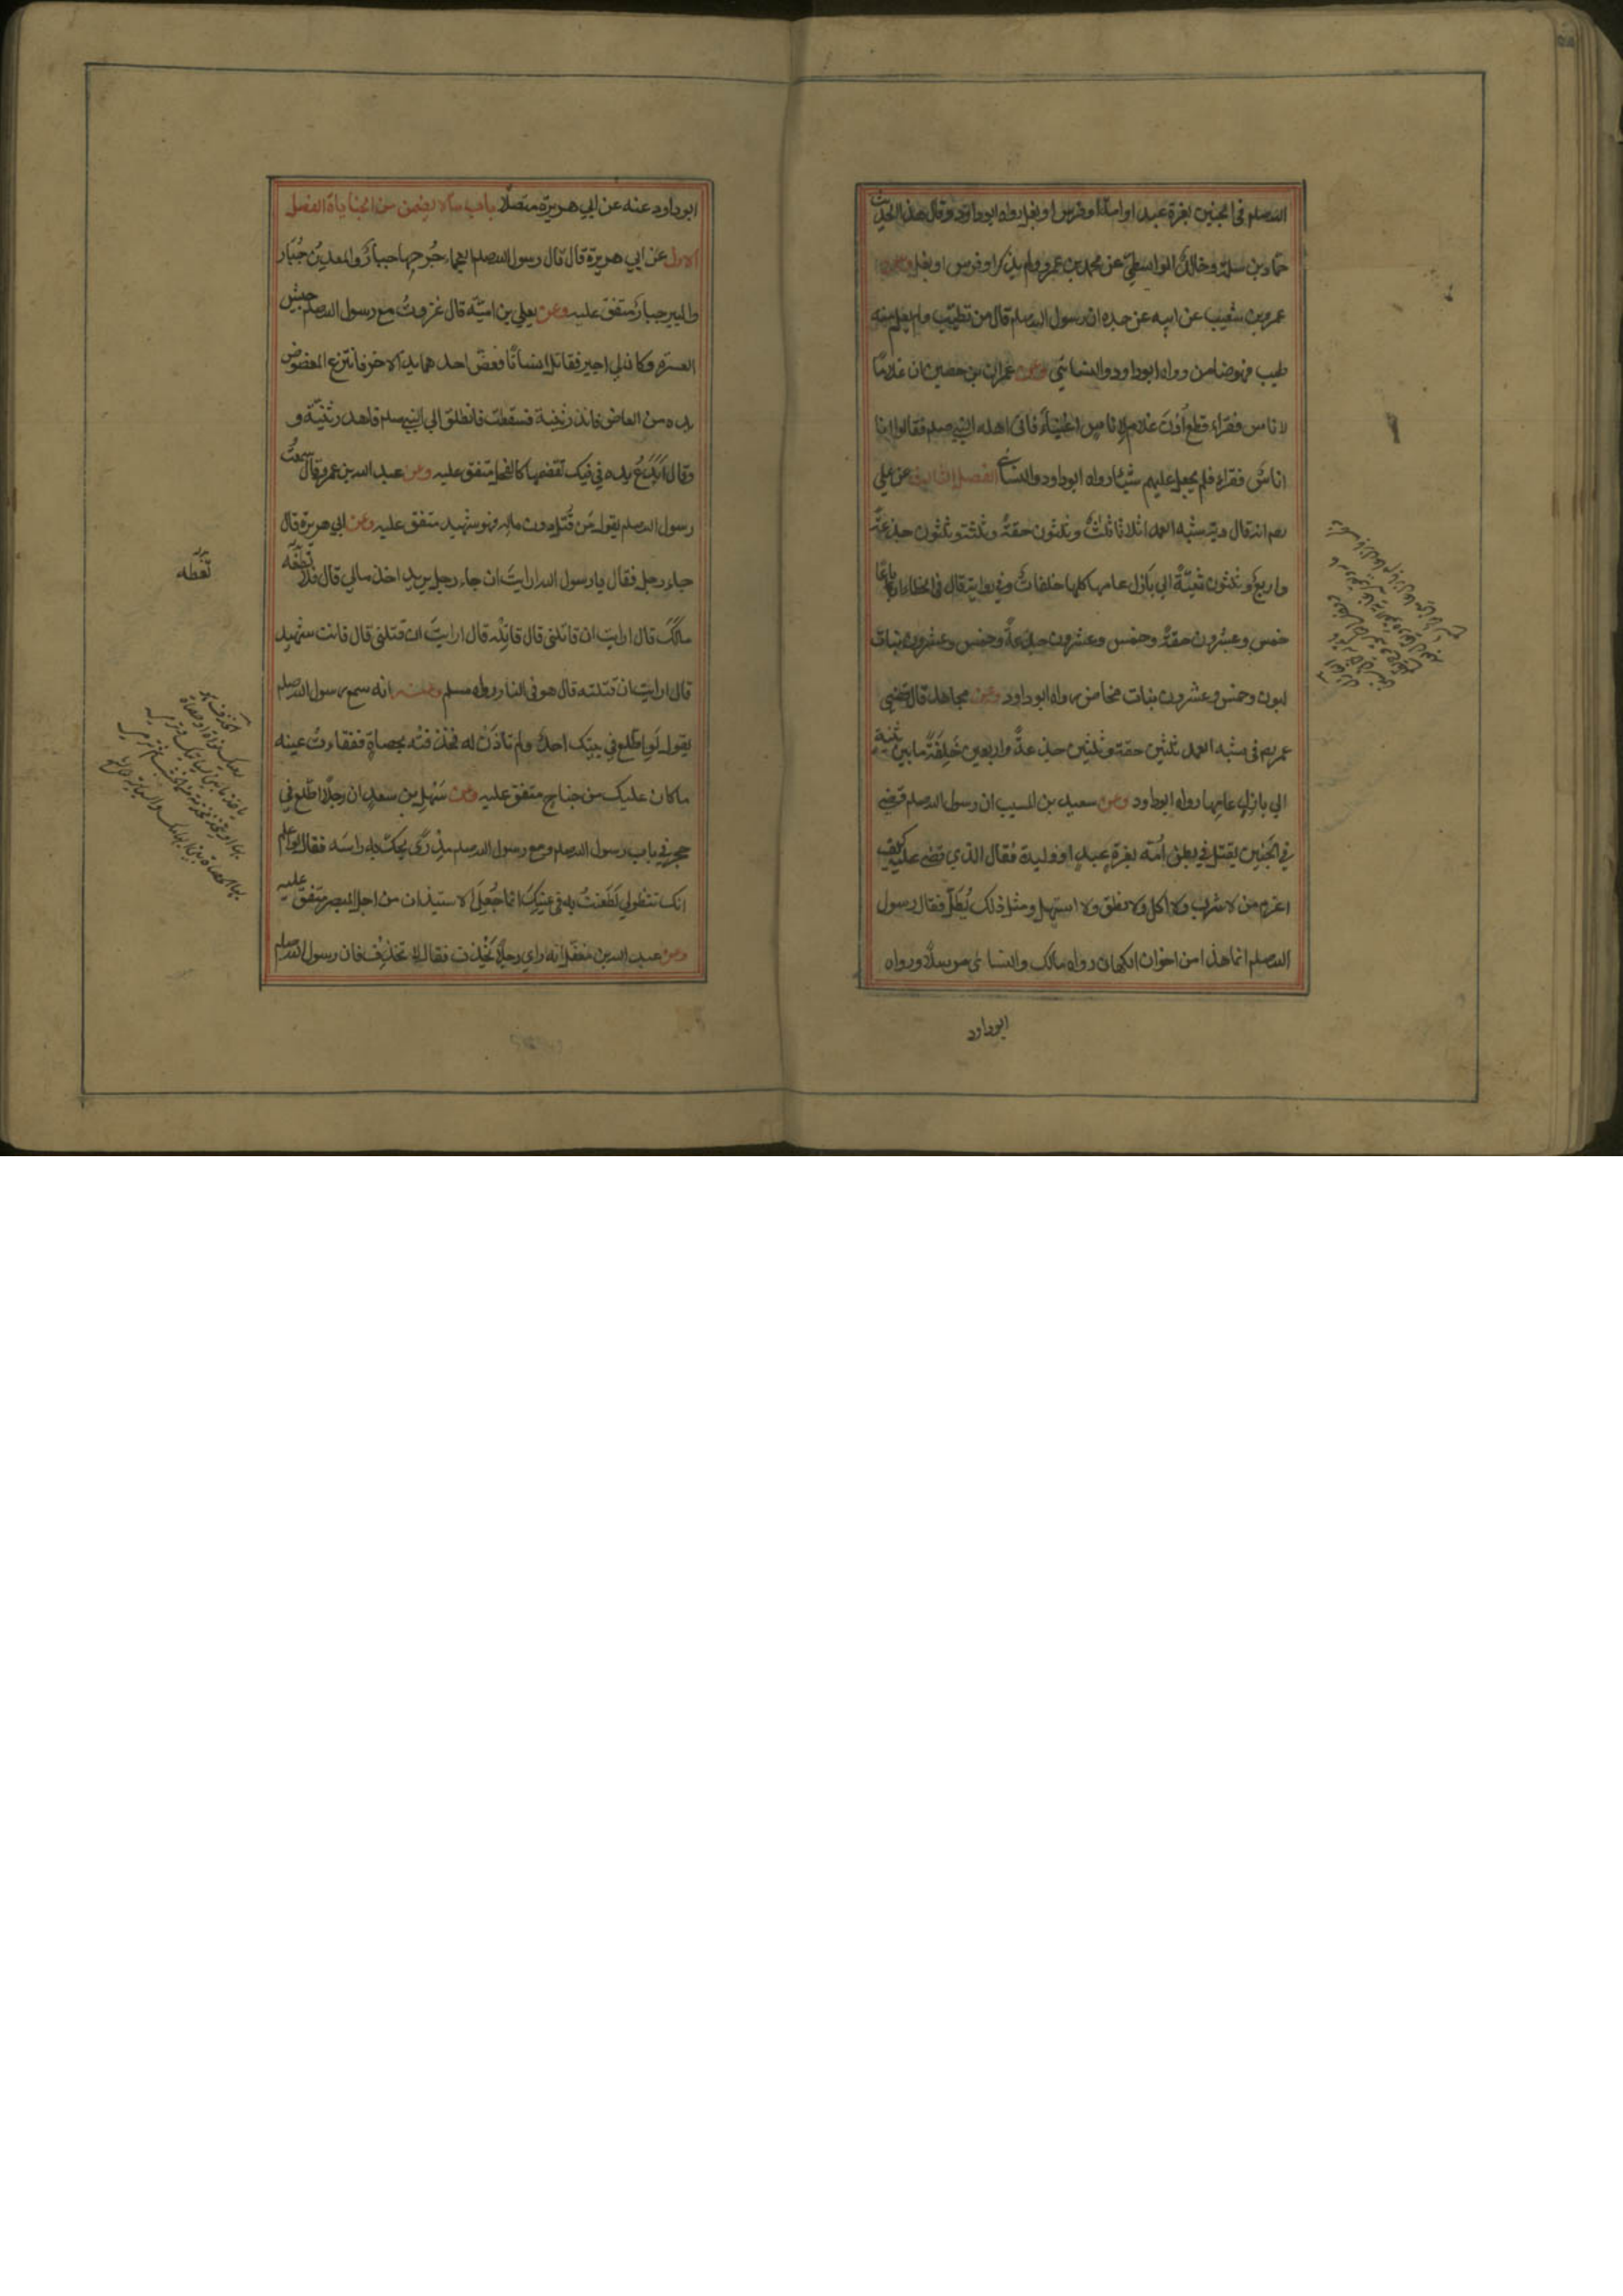 الله صلعم في الجنين بغرة عبد او امة او فرس او بغل رواه ابوداود وقال هذا الحديث
حماد بن سلمة وخالد الواسطي عن محمد بن عمرو ولم يذكرا او فرس او بغل وعن
عمرو بن شعيب عن ابيه عن جده ان رسول الله صلعم قال من تطبب ولم يعلم منه
طبيب فهو ضامن رواه ابوداود والنسائي وعن عمران بن حصين ان غلامًا
لاناس فقراء قطع اذن غلام لاناس اغنياء فاتى اهله النبي صلعم فقالوا انا
اناس فقراء فلم يجعل عليهم شيئا رواه ابوداود والنسائي الفصل الثالث عن علي
رضي انه قال دية شبه العمد اثلاثا ثلث وثلثون حقة وثلث وثلثون جذعة
واربع وثلثون ثنية الي بازل عامها كلها خلفات وفي رواية قال في الخطاء ارباعًا
خمس وعشرون حقة وخمس وعشرون جذعة وخمس وعشرون بنات
لبون وخمس وعشرون بنات مخاض رواه ابوداود وعن مجاهد قال قضي
عمر رض في شبه العمد ثلثين حقة وثلثين جذعة واربعين خلفة ما بين ثنية
الي بازل عامها رواه ابوداود وعن سعيد بن المسيب ان رسول الله صلعم قضي
في الجنين يقتل في بطن امه بغرة عبد او وليدة فقال الذي قضي عليه كيف
اغرم من لا شرب ولا اكل ولا نطق ولا استهل ومثل ذلك يُطَلّ فقال رسول
الله صلعم انما هذا من اخوان الكهان رواه مالك والنسائي مرسلا ورواه
ابوداود
ابوداود عنه عن ابي هريرة متصلًا باب ما لا يضمن من الجنايات الفصل
الاول عن ابي هريرة قال قال رسول الله صلعم العجماء جُرحها جبار والمعدن جُبار
والبير جبار متفق عليه وعن يعلي بن امية قال غزوت مع رسول الله صلعم جيش
العسرة وكان لي اجير فقاتل انسانًا فعض احدهما يد الاخر فانتزع المعضوض
يده من العاض فاندر ثنيته فسقطت فانطلق الي النبي صلعم فاهدر ثنيته و
وقال ايدع يده في فيك تقضمها كالفحل متفق عليه وعن عبد الله بن عمرو قال سمعت
رسول الله صلعم يقول من قُتل دون ماله فهو شهيد متفق عليه وعن ابي هريرة قال
جاء رجل فقال يا رسول الله ارايت ان جاء رجل يريد اخذ مالي قال فلا تعطه
مالك قال ارايت ان قاتلني قال قاتله قال ارايت ان قتلني قال فانت شهيد
قال ارايت ان قتلته قال هو في النار رواه مسلم وعنه انه سمع رسول الله صلعم
يقول لو اطّلع في بيتك احد ولم تاذن له فخذفته بحصاة ففقاءت عينه
ما كان عليك من جناح متفق عليه وعن سهل بن سعد ان رجلًا اطّلع في
حجر في باب رسول الله صلعم ومع رسول الله صلعم مذري يحك به راسه فقال لو اعلم
انك تنظرني لطعنت به في عينيك انما جُعل الاستيذان من اجل البصر متفق عليه
وعن عبد الله بن مغفل انه راي رجلًا يخذف فقال لا تخذف فان رسول الله صلعم
تُعْطِه